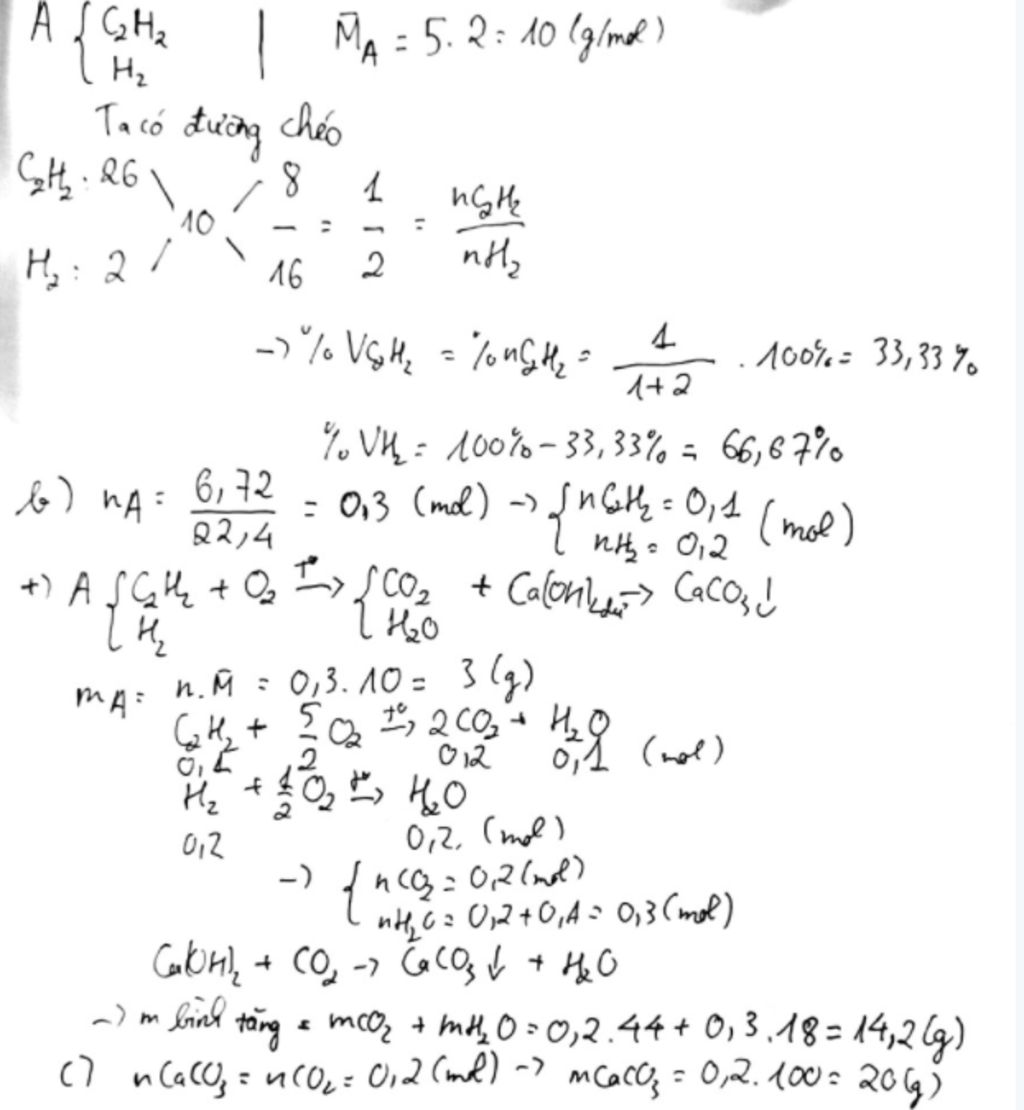 A { C₂H₂ | M̄_A = 5.2 = 10 (g/mol)
H₂
Ta có đường chéo
C₂H₂: 26 8 1 nC₂H₂
10 — = — = —
H₂: 2 16 2 nH₂
→ % VC₂H₂ = % nC₂H₂ = 1/(1+2) . 100% = 33,33%
% VH₂ = 100% - 33,33% = 66,67%
b) nA = 6,72/22,4 = 0,3 (mol) → { nC₂H₂ = 0,1 (mol)
nH₂ = 0,2
+) A { C₂H₂ + O₂ →(t°) { CO₂ + Ca(OH)₂ dư → CaCO₃↓
H₂ H₂O
mA = n.M̄ = 0,3.10 = 3 (g)
C₂H₂ + 5/2 O₂ →(t°) 2CO₂ + H₂O
0,1 0,2 0,1 (mol)
H₂ + 1/2 O₂ →(t°) H₂O
0,2 0,2. (mol)
→ { nCO₂ = 0,2 (mol)
nH₂O = 0,2 + 0,1 = 0,3 (mol)
Ca(OH)₂ + CO₂ → CaCO₃↓ + H₂O
→ m bình tăng = mCO₂ + mH₂O = 0,2.44 + 0,3.18 = 14,2 (g)
c) nCaCO₃ = nCO₂ = 0,2 (mol) → mCaCO₃ = 0,2.100 = 20 (g)